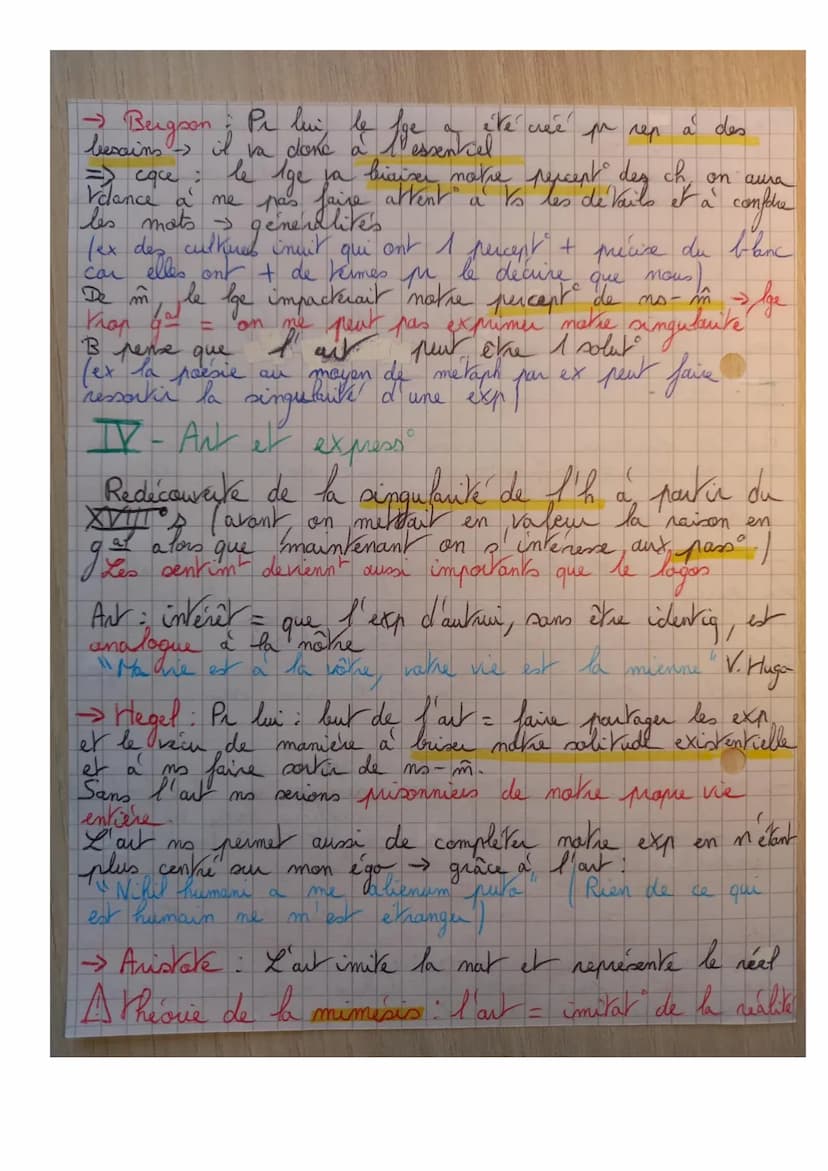 → Bergson : Pr lui, le lge a été créé pr rep à des
besoins → il va donc à l'essentiel
=> cqce : le lge va biaiser notre percept° des ch, on aura
tdance à ne pas faire attent° à ts les détails et à confdre
les mots → généralités
(ex des cultures inuit qui ont 1 percept° + précise du blanc
car elles ont + de termes pr le décrire que nous)
De m̂, le lge impacterait notre percept° de ns-m̂ → lge
trop gal = on ne peut pas exprimer notre singularité
B pense que l'art peut être 1 solut°
(ex la poésie au moyen de métaph par ex peut faire
ressortir la singularité d'une exp)
IV - Art et express°
Redécouverte de la singularité de l'h à partir du
XVIII° s (avant, on mettait en valeur la raison en
gal alors que maintenant on s'intéresse aux pass°.)
Les sentimt devienнt aussi importants que le logos
Art : intérêt = que l'exp d'autrui, sans être identiq, est
analogue à la nôtre
"Ma vie est à la vôtre, votre vie est la mienne" V. Hugo
→ Hegel : Pr lui : but de l'art = faire partager les exp
et le vécu de manière à briser notre solitude existentielle
et à ns faire sortir de ns-m̂.
Sans l'art ns serions prisonniers de notre propre vie
entière.
L'art ns permet aussi de compléter notre exp en n'étant
plus centré sur mon égo → grâce à l'art :
"Nihil humani a me alienum puto" (Rien de ce qui
est humain ne m'est étranger)
→ Aristote : L'art imite la nat et représente le réel
⚠ Théorie de la mimésis : l'art = imitat° de la réalité